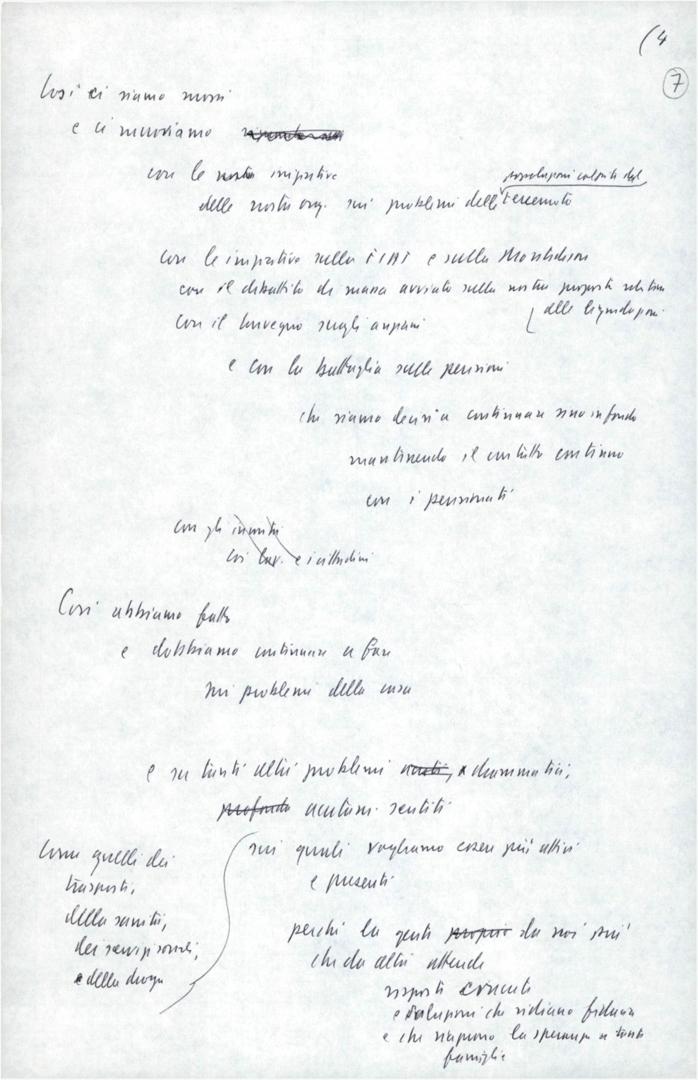 (4
7
Così ci siamo mossi
e ci muoviamo
con le nostre iniziative
popolazioni colpite dal
delle nostre org. sui problemi delle terremoto
con le iniziative sulla FIAT e sulla Montedison
con il dibattito di massa avviato sulla nostra proposta
alle liquidazioni
con il Convegno sugli anziani
e con la battaglia sulle pensioni
che siamo decisi a continuare sino in fondo
mantenendo il contatto continuo
con i pensionati
con gli
coi lav. e i cittadini
Così abbiamo fatto
e dobbiamo continuare a fare
sui problemi della casa
e su tanti altri problemi acuti, drammatici,
profondi acutam. sentiti
Come quelli dei
trasporti,
della sanità,
dei servizi sociali,
e della droga
sui quali vogliamo essere più attivi
e presenti
perché la gente proprio da noi più
che da altri attende
risposte concrete
e soluzioni che ridiano fiducia
e che riaprano la speranza a tante
famiglie